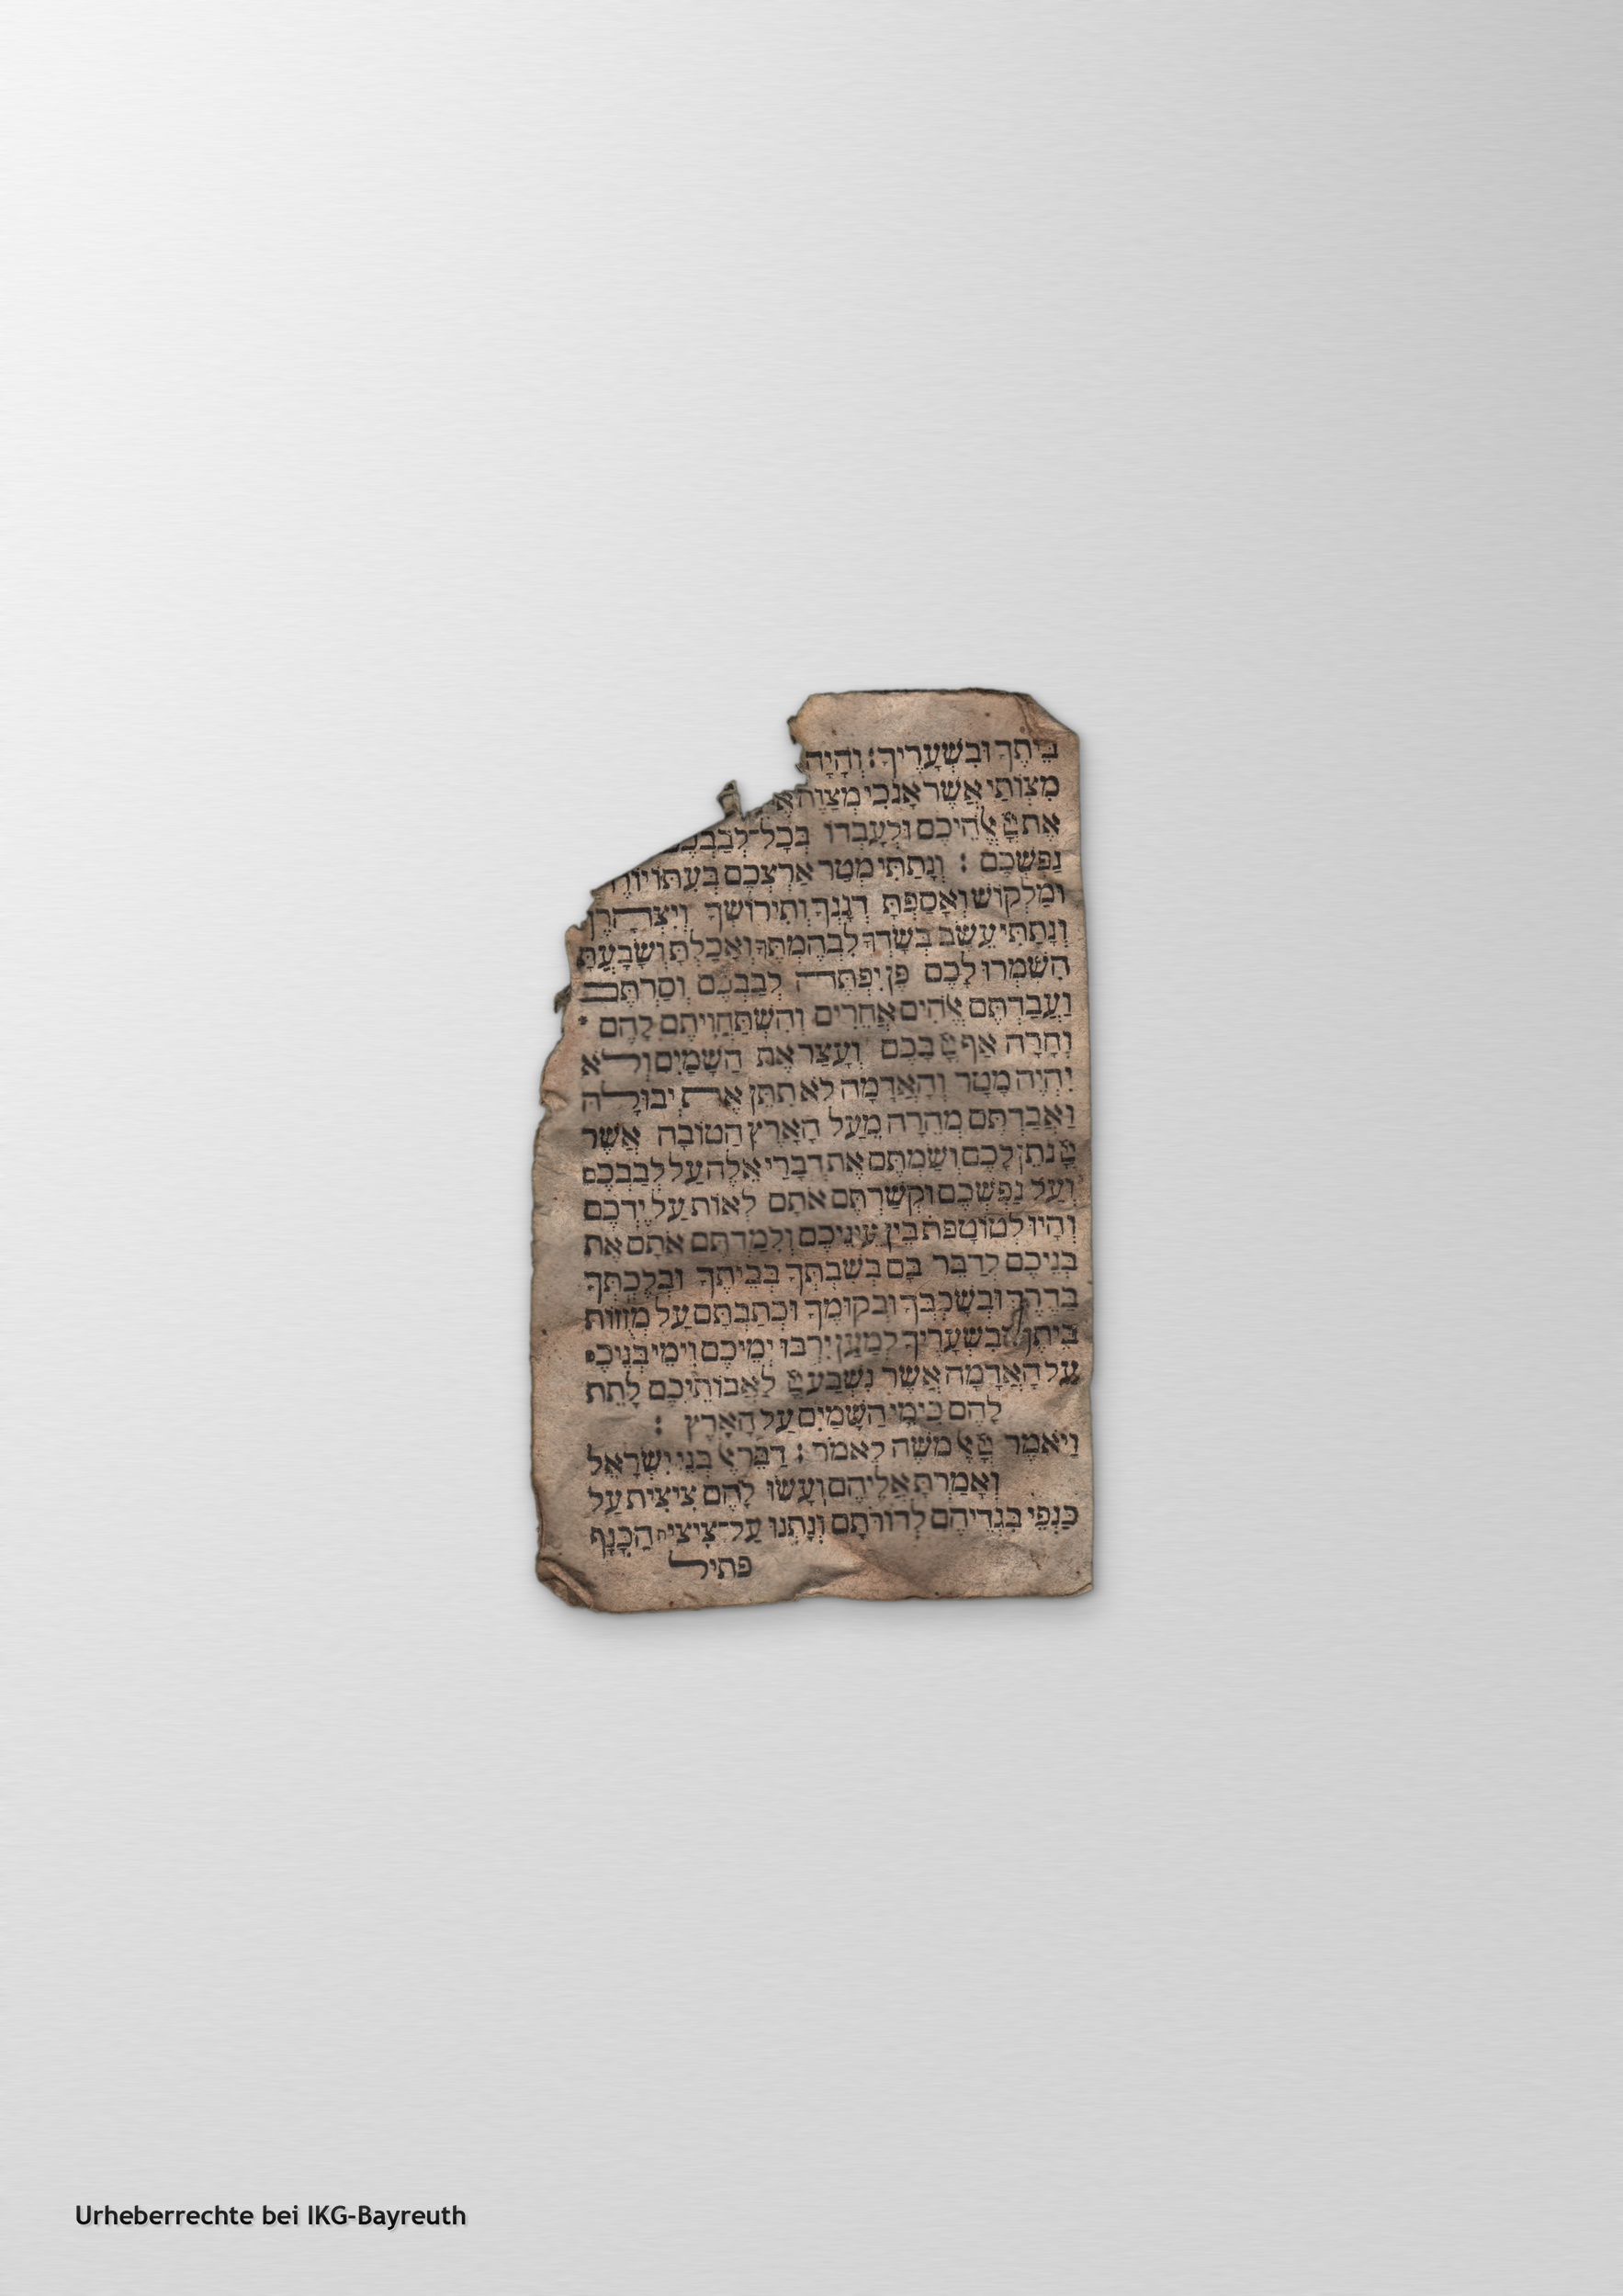 בֵּיתֶךָ וּבִשְׁעָרֶיךָ: וְהָיָה
מִצְוֹתַי אֲשֶׁר אָנֹכִי מְצַוֶּה
אֶת אֱלֹהֵיכֶם וּלְעָבְדוֹ בְּכָל־לְבַבְכֶם
נַפְשְׁכֶם : וְנָתַתִּי מְטַר אַרְצְכֶם בְּעִתּוֹ יוֹרֶה
וּמַלְקוֹשׁ וְאָסַפְתָּ דְגָנֶךָ וְתִירוֹשְׁךָ וְיִצְהָרֶךָ
וְנָתַתִּי עֵשֶׂב בְּשָׂדְךָ לִבְהֶמְתֶּךָ וְאָכַלְתָּ וְשָׂבָעְתָּ
הִשָּׁמְרוּ לָכֶם פֶּן יִפְתֶּה לְבַבְכֶם וְסַרְתֶּם
וַעֲבַדְתֶּם אֱלֹהִים אֲחֵרִים וְהִשְׁתַּחֲוִיתֶם לָהֶם
וְחָרָה אַף בָּכֶם וְעָצַר אֶת הַשָּׁמַיִם וְלֹא
יִהְיֶה מָטָר וְהָאֲדָמָה לֹא תִתֵּן אֶת יְבוּלָהּ
וַאֲבַדְתֶּם מְהֵרָה מֵעַל הָאָרֶץ הַטּוֹבָה אֲשֶׁר
נֹתֵן לָכֶם וְשַׂמְתֶּם אֶת דְּבָרַי אֵלֶּה עַל לְבַבְכֶם
וְעַל נַפְשְׁכֶם וּקְשַׁרְתֶּם אֹתָם לְאוֹת עַל יֶדְכֶם
וְהָיוּ לְטוֹטָפֹת בֵּין עֵינֵיכֶם וְלִמַּדְתֶּם אֹתָם אֶת
בְּנֵיכֶם לְדַבֵּר בָּם בְּשִׁבְתְּךָ בְּבֵיתֶךָ וּבְלֶכְתְּךָ
בַדֶּרֶךְ וּבְשָׁכְבְּךָ וּבְקוּמֶךָ וּכְתַבְתָּם עַל מְזוּזוֹת
בֵּיתֶךָ וּבִשְׁעָרֶיךָ לְמַעַן יִרְבּוּ יְמֵיכֶם וִימֵי בְנֵיכֶם
עַל הָאֲדָמָה אֲשֶׁר נִשְׁבַּע לַאֲבוֹתֵיכֶם לָתֵת
לָהֶם כִּימֵי הַשָּׁמַיִם עַל הָאָרֶץ :
וַיֹּאמֶר אֶל מֹשֶׁה לֵּאמֹר : דַּבֵּר אֶל בְּנֵי יִשְׂרָאֵל
וְאָמַרְתָּ אֲלֵיהֶם וְעָשׂוּ לָהֶם צִיצִית עַל
כַּנְפֵי בִגְדֵיהֶם לְדוֹרֹתָם וְנָתְנוּ עַל־צִיצִית הַכָּנָף
פתיל
Urheberrechte bei IKG-Bayreuth